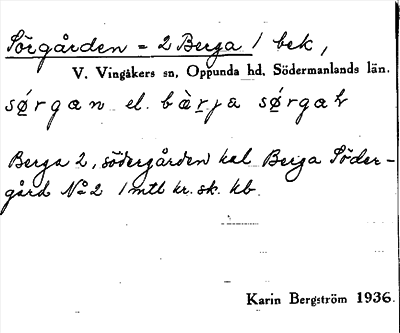 Sörgården = 2 Berga / bek,
V. Vingåkers sn, Oppunda hd, Södermanlands län.
sørgan el. bærja sørgaɫ
Berga 2, södergården kal Berga Söder-
gård No 2 1 mtl kr. sk. kb.
Karin Bergström 1936.